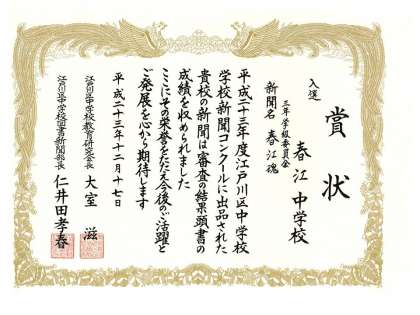 賞状
入選
春江中学校
三年学級委員会
新聞名 春江魂
平成二十三年度江戸川区中学校
学校新聞コンクールに出品された
貴校の新聞は審査の結果頭書の
成績を収められました
ここにその栄誉をたたえ今後のご活躍と
ご発展を心から期待します
平成二十三年十二月十七日
江戸川区中学校教育研究会長 大室 滋
江戸川区中学校図書新聞部長 仁井田孝春